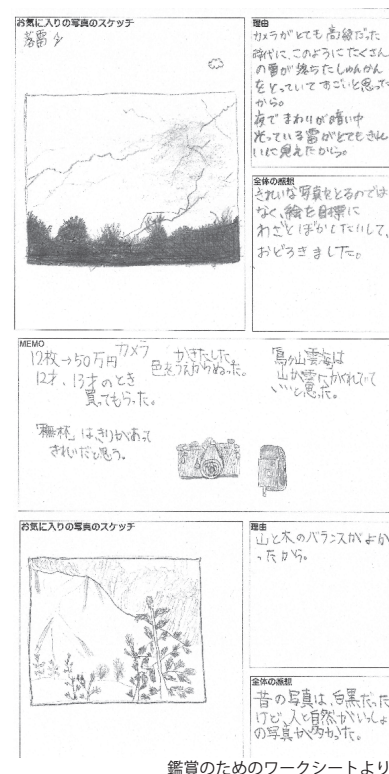 お気に入りの写真のスケッチ
落雷
理由
カメラがとても高級だった
時代に、このようにたくさん
の雷が落ちたしゅんかん
をとっていてすごいと思った
から。
夜でまわりが暗い中
光っている雷がとてもきれ
いに見えたから。
全体の感想
きれいな写真をとるのでは
なく、絵を目標に
わざとぼかしたりして、
おどろきました。
MEMO
12枚→50万円 カメラ
12才、13才のとき
買ってもらった。
かきたした。
色をうらからぬった。
雲海は
山が雲でかくれていて
いいと思った。
は、きりがあって
きれいだと思う。
お気に入りの写真のスケッチ
理由
山と木のバランスがよか
ったから。
全体の感想
昔の写真は、白黒だった
けど、人と自然がいっしょ
の写真が多かった。
鑑賞のためのワークシートより